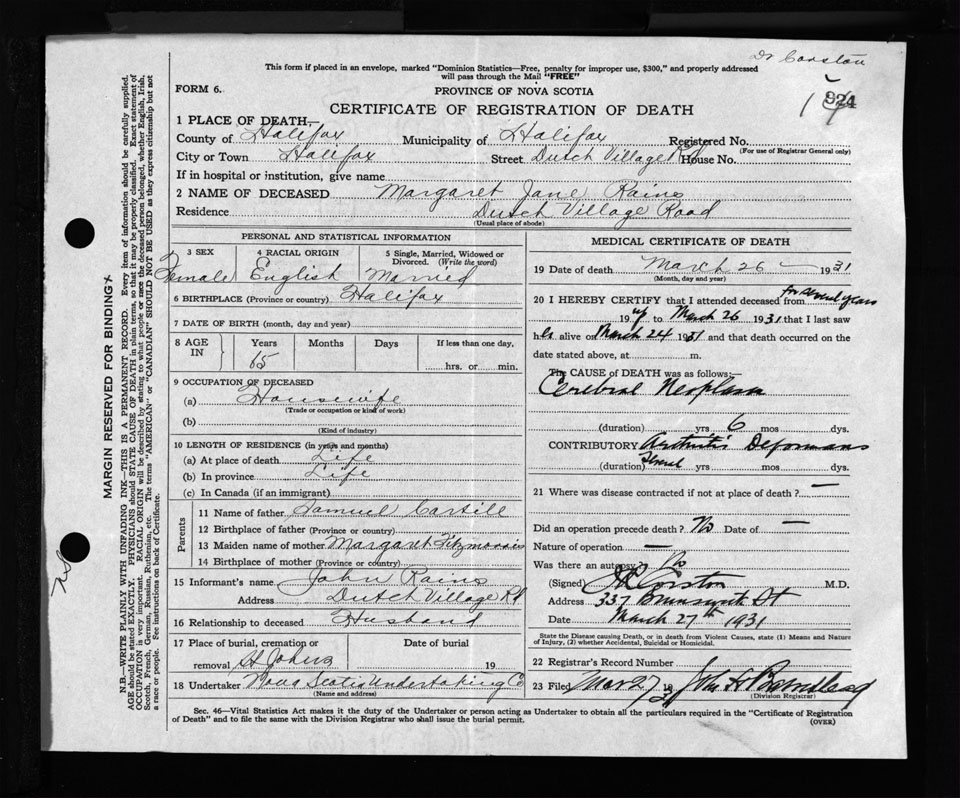 Dr Corston
This form if placed in an envelope, marked "Dominion Statistics—Free, penalty for improper use, $300," and properly addressed
will pass through the Mail "FREE"
924
19
FORM 6.
PROVINCE OF NOVA SCOTIA
CERTIFICATE OF REGISTRATION OF DEATH
1 PLACE OF DEATH—
County of Halifax Municipality of Halifax Registered No.
(For use of Registrar General only)
City or Town Halifax Street Dutch Village Rd House No.
If in hospital or institution, give name
2 NAME OF DECEASED Margaret Jane Rains
Residence Dutch Village Road
(Usual place of abode)
PERSONAL AND STATISTICAL INFORMATION
3 SEX 4 RACIAL ORIGIN 5 Single, Married, Widowed or
Divorced. (Write the word)
Female English Married
6 BIRTHPLACE (Province or country) Halifax
7 DATE OF BIRTH (month, day and year)
8 AGE IN Years Months Days If less than one day,
65 hrs. or min.
9 OCCUPATION OF DECEASED
(a) Housewife
(Trade or occupation or kind of work)
(b)
(Kind of industry)
10 LENGTH OF RESIDENCE (in years and months)
(a) At place of death Life
(b) In province Life
(c) In Canada (if an immigrant)
Parents
11 Name of father Samuel
12 Birthplace of father (Province or country)
13 Maiden name of mother Margaret Fitzmorris
14 Birthplace of mother (Province or country)
15 Informant's name John Rains
Address Dutch Village Rd
16 Relationship to deceased Husband
17 Place of burial, cremation or Date of burial
removal St Johns 19
18 Undertaker Nova Scotia Undertaking Co
(Name and address)
MEDICAL CERTIFICATE OF DEATH
19 Date of death March 26 — 1931
(Month, day and year)
20 I HEREBY CERTIFY that I attended deceased from for several years
19 up to March 26 1931 that I last saw
her alive on March 24 1931 and that death occurred on the
date stated above, at m.
The CAUSE of DEATH was as follows:—
Cerebral Neoplasm
(duration) yrs 6 mos dys.
CONTRIBUTORY Arthritis Deformans
(duration) Several yrs mos dys.
21 Where was disease contracted if not at place of death? —
Did an operation precede death? No Date of —
Nature of operation —
Was there an autopsy? No
(Signed) Corston M.D.
Address 337 Brunswick St
Date March 27th 1931
State the Disease causing Death, or in death from Violent Causes, state (1) Means and Nature
of Injury, (2) whether Accidental, Suicidal or Homicidal.
22 Registrar's Record Number
23 Filed Mar 27 19 John H
(Division Registrar)
Sec. 46—Vital Statistics Act makes it the duty of the Undertaker or person acting as Undertaker to obtain all the particulars required in the "Certificate of Registration
of Death" and to file the same with the Division Registrar who shall issue the burial permit.
(OVER)
MARGIN RESERVED FOR BINDING
N.B.—WRITE PLAINLY WITH UNFADING INK—THIS IS A PERMANENT RECORD. Every item of information should be carefully supplied.
AGE should be stated EXACTLY. PHYSICIANS should STATE CAUSE OF DEATH in plain terms, so that it may be properly classified. Exact statement of
OCCUPATION is very important. RACIAL ORIGIN will be described by stating to what people or race the deceased person belonged, whether English, Irish,
Scotch, French, German, Russian, Ruthenian, etc. The terms "AMERICAN" or "CANADIAN" SHOULD NOT BE USED as they express citizenship but not
a race or people. See instructions on back of Certificate.